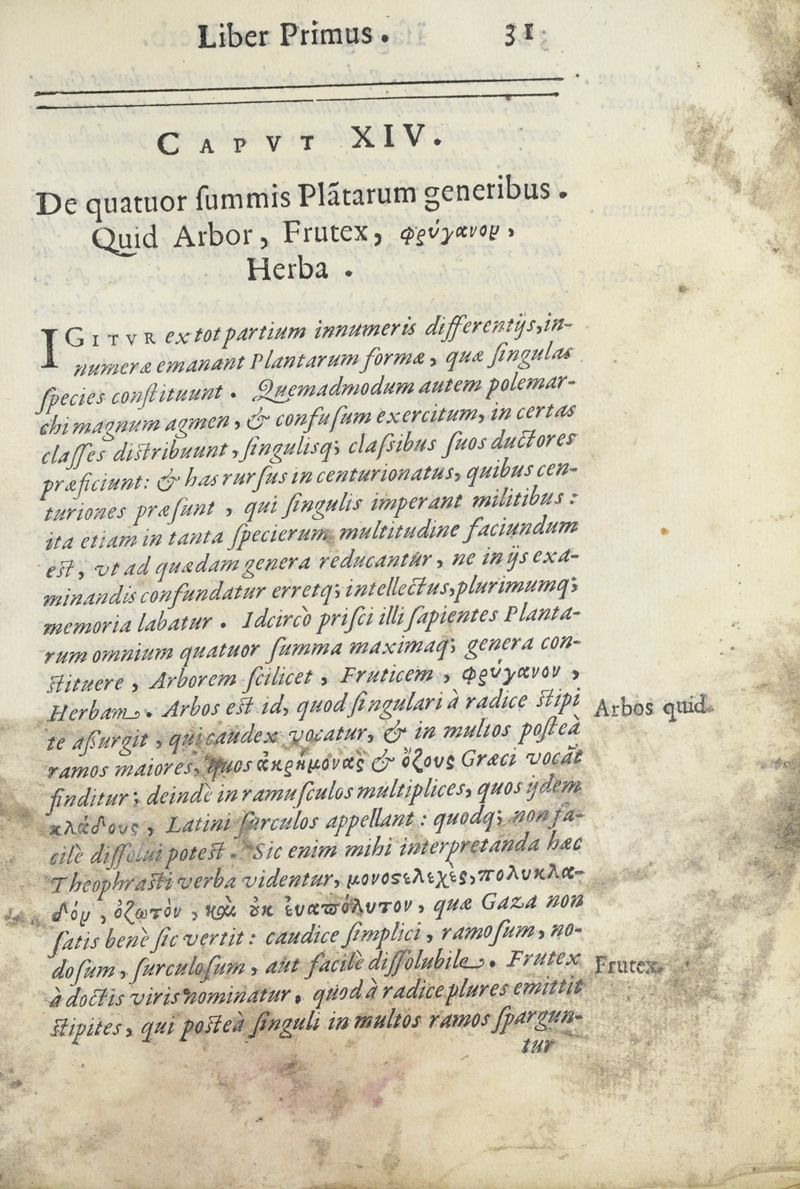 Liber Primus. 31
CAPVT XIV.
De quatuor ſummis Plãtarum generibus.
Quid Arbor, Frutex, φρύγανον,
Herba.
IGITVR ex tot partium innumeris differentijs, in-
numeræ emanant Plantarum formæ, quæ ſingulas
ſpecies conſtituunt. Quemadmodum autem polemar-
chi magnum agmen, & confuſum exercitum, in certas
claſſes distribuunt, ſingulisq; claſsibus ſuos ductores
præficiunt: & has rurſus in centurionatus, quibus cen-
turiones præſunt, qui ſingulis imperant militibus:
ita etiam in tanta ſpecierum multitudine faciundum
eſt, vt ad quædam genera reducantur, ne in ijs exa-
minandis confundatur erretq; intellectus, plurimumq;
memoria labatur. Idcircò priſci illi ſapientes Planta-
rum omnium quatuor ſumma maximaq; genera con-
ſtituere, Arborem ſcilicet, Fruticem, φρύγανον,
Herbam. Arbos eſt id, quod ſingulari à radice ſtipi
te aſſurgit, qui caudex vocatur, & in multos poſteà
ramos maiores, quos ἀκρήμονας & ὄζους Græci vocãt
finditur; deindè in ramuſculos multiplices, quos ijdem
κλάδους, Latini ſurculos appellant: quodq; non fa-
cilè diſſolui poteſt. Sic enim mihi interpretanda hæc
Theophraſti verba videntur, μονοστελεχὲς, πολυκλα-
δόν, ὀζωτὸν, καὶ οὐκ ἐυαπόλυτον, quæ Gaza non
ſatis benè ſic vertit: caudice ſimplici, ramoſum, no-
doſum, ſurculoſum, aut facilè diſſolubile. Frutex
à doctis viris nominatur, quod à radice plures emittit
ſtipites, qui poſteà ſinguli in multos ramos ſpargun-
tur
Arbos quid.
Frutex.